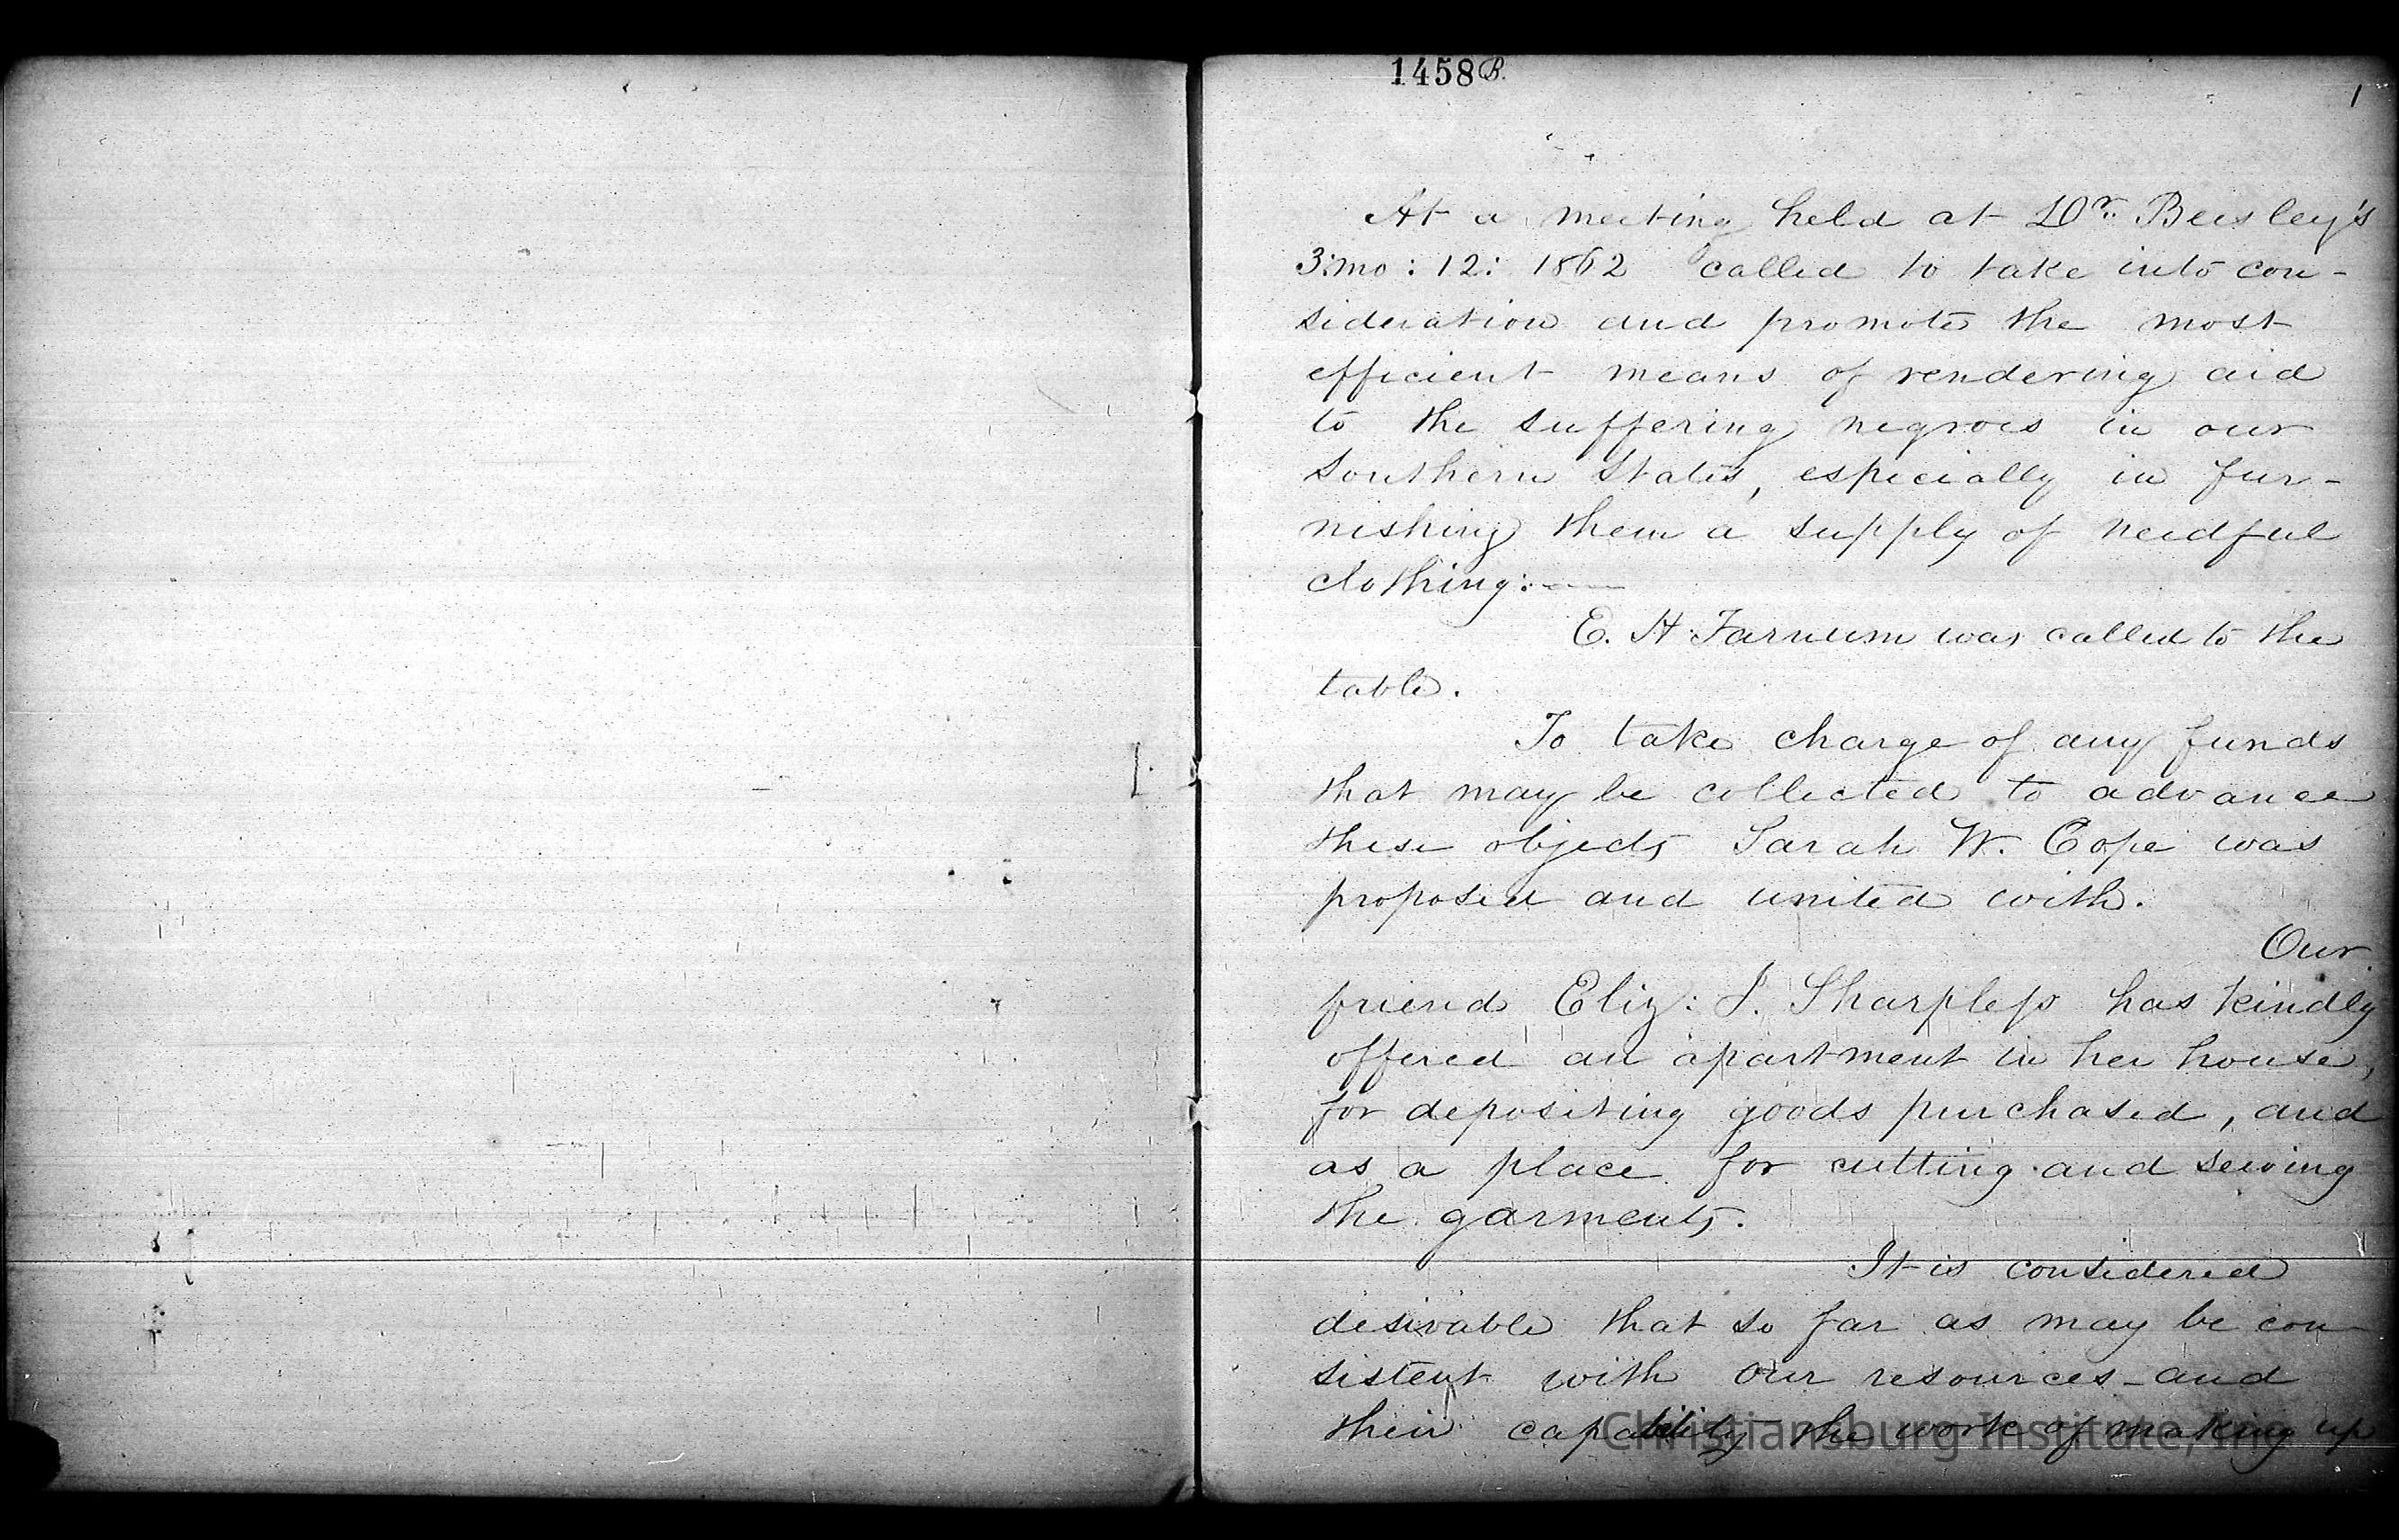 1458 B.
1
At a meeting held at Dr. Beesley's
3:mo: 12: 1862 called to take into con-
sideration and promote the most
efficient means of rendering aid
to the suffering negroes in our
Southern States, especially in fur-
nishing them a supply of needful
clothing:—
E. H. Farnum was called to the
table.
To take charge of any funds
that may be collected to advance
these objects Sarah W. Cope was
proposed and united with.
Our
friend Eliz: J. Sharpless has kindly
offered an apartment in her house,
for depositing goods purchased, and
as a place for cutting and sewing
the garments.
It is considered
desirable that so far as may be con-
sistent with our resources and
their capability the work of making up
Christiansburg Institute, Inc